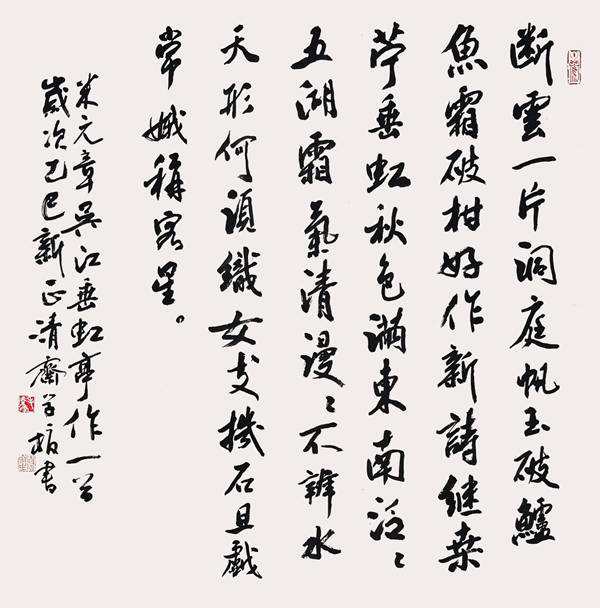 断雲一片洞庭帆玉破鱸
魚霜破柑好作新詩継桑
苧垂虹秋色滿東南泛〻
五湖霜氣清漫〻不辨水
天形何須織女支機石且戲
常娥稱客星。
米元章吳江垂虹亭作一首
歲次乙巳新正清齋学書